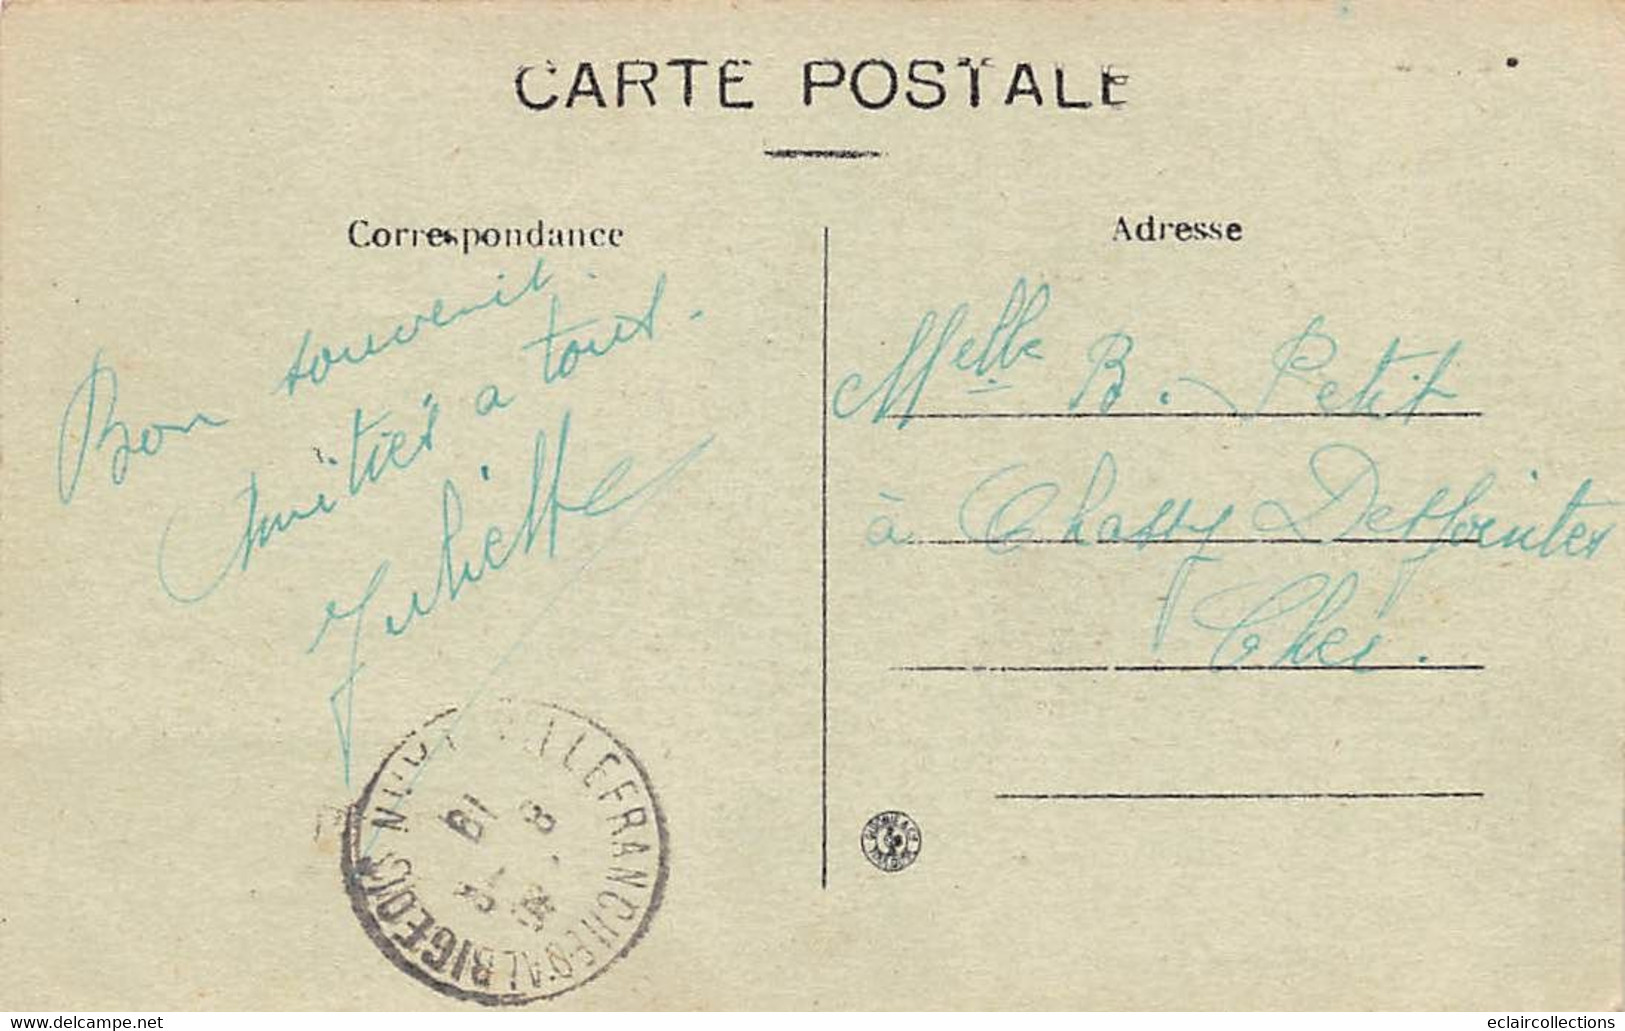 CARTE POSTALE
Correspondance
Bon souvenir.
Amitiés a tous.
Juliette
Adresse
Melle B. Petit
à Chassy Desjointes
Cher.
VILLEFRANCHE D'ALBIGEOIS
18
8
www.delcampe.net
eclaircollections